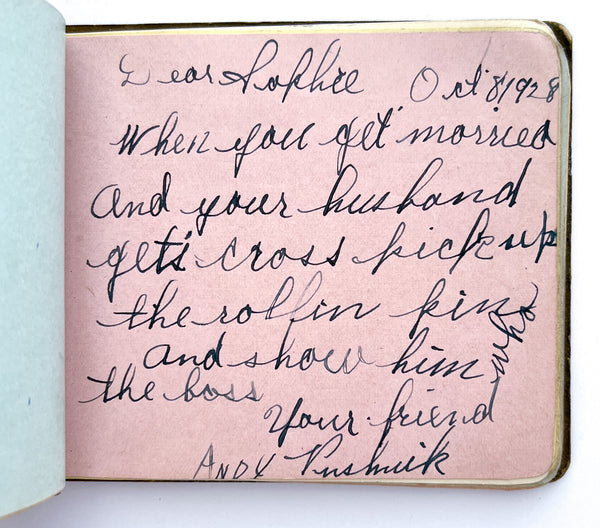 Dear Sophie Oct 8 1928
When you get married
And your husband
gets cross pick up
the rollin pin
and show him whos
the boss
Your friend
ANDY Pushnik